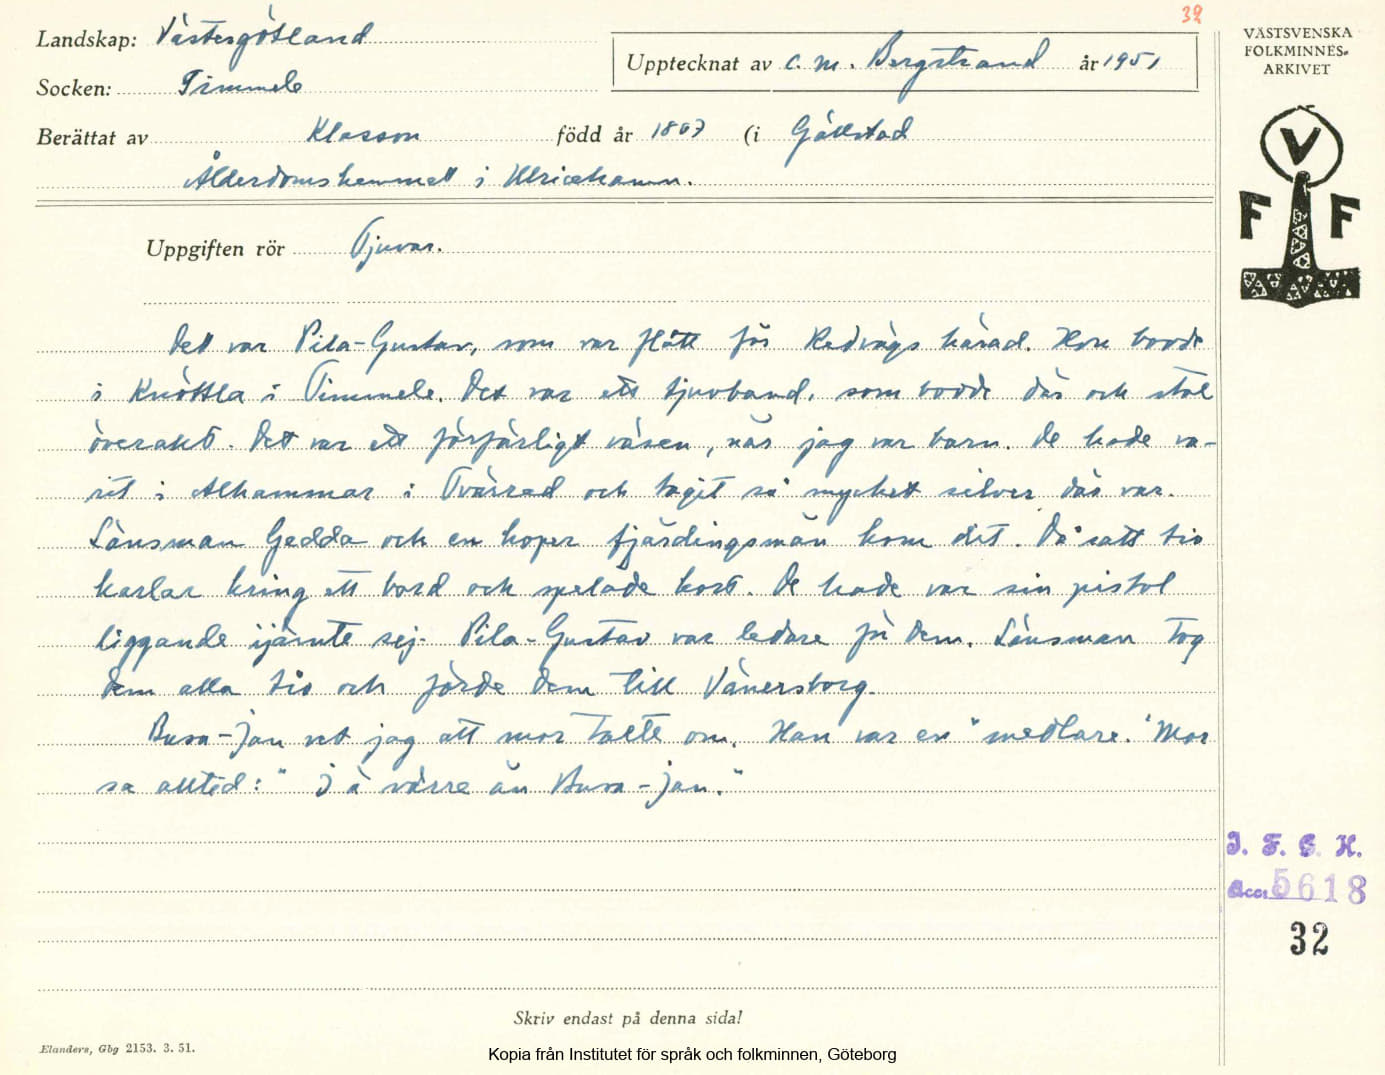 32
Landskap: Västergötland
Upptecknat av C. M. Bergstrand år 1951
Socken: Timmele
Berättat av Klasson född år 1867 (i Gällstad
Ålderdomshemmet i Ulricehamn.
Uppgiften rör Tjuvar.
Det var Pila-Gustav, som var flått för Redvägs härad. Hon bodde
i Knättla i Timmele. Det var ett tjuvband, som bodde där och stal
överallt. Det var ett förfärligt väsen, när jag var barn. De hade va-
rit i Alhammar i Tvärred och tagit så mycket silver där var.
Länsman Gedda och en hoper fjärdingsmän kom dit. Då satt tio
karlar kring ett bord och spelade kort. De hade var sin pistol
liggande ijämte sej. Pila-Gustav var ledare för dem. Länsman tog
dem alla tio och förde dem till Vänersborg.
Busa-Jan vet jag att mor talte om. Han var en "medlare." Mor
sa alltid: "J ä värre än Busa-Jan."
VÄSTSVENSKA
FOLKMINNES-
ARKIVET
V
F F
I. F. G. H.
Acc. 5618
32
Skriv endast på denna sida!
Elanders, Gbg 2153. 3. 51.
Kopia från Institutet för språk och folkminnen, Göteborg